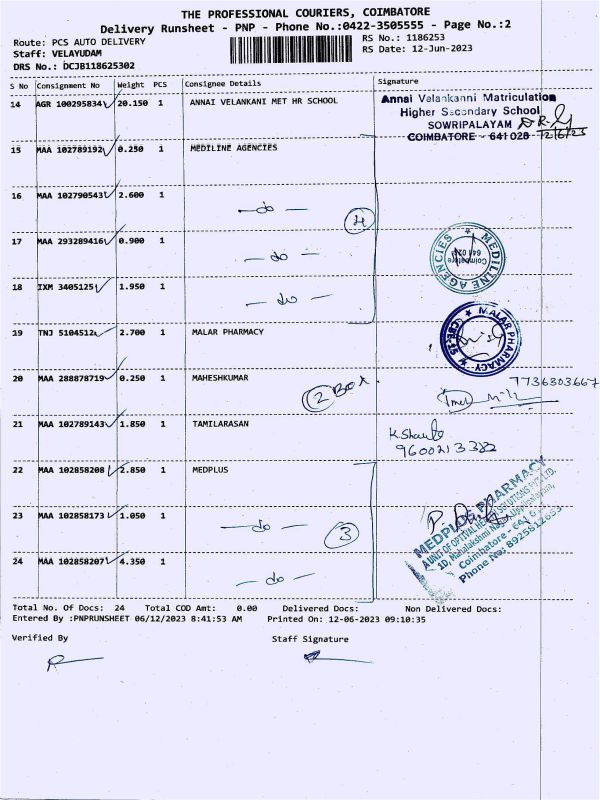 THE PROFESSIONAL COURIERS, COIMBATORE
Delivery Runsheet - PNP - Phone No.:0422-3505555 - Page No.:2
Route: PCS AUTO DELIVERY
Staff: VELAYUDAM
DRS No.: DCJB118625302
RS No.: 1186253
RS Date: 12-Jun-2023
S No Consignment No Weight PCS Consignee Details Signature
14 AGR 100295834 20.150 1 ANNAI VELANKANI MET HR SCHOOL
Annai Velankanni Matriculation
Higher Secondary School
SOWRIPALAYAM
COIMBATORE - 641 028 12/6/23
15 MAA 102789192 0.250 1 MEDILINE AGENCIES
16 MAA 102790543 2.600 1 — do —
4
17 MAA 293289416 0.900 1 — do —
MEDILINE AGENCIES
Coimbatore
641 028
18 IXM 3405125 1.950 1 — do —
19 TNJ 5104512 2.700 1 MALAR PHARMACY
MALAR PHARMACY
20 MAA 288878719 0.250 1 MAHESHKUMAR
2 Box.
7736303667
21 MAA 102789143 1.850 1 TAMILARASAN
9600213382
22 MAA 102858208 2.850 1 MEDPLUS
23 MAA 102858173 1.050 1 — do —
3
24 MAA 102858207 4.350 1 — do —
MEDPLUS PHARMACY
A UNIT OF OPTIVAL HEALTH SOLUTIONS PVT LTD.
Coimbatore - 641
Phone No: 8925812653
Total No. Of Docs: 24 Total COD Amt: 0.00 Delivered Docs: Non Delivered Docs:
Entered By :PNPRUNSHEET 06/12/2023 8:41:53 AM Printed On: 12-06-2023 09:10:35
Verified By Staff Signature